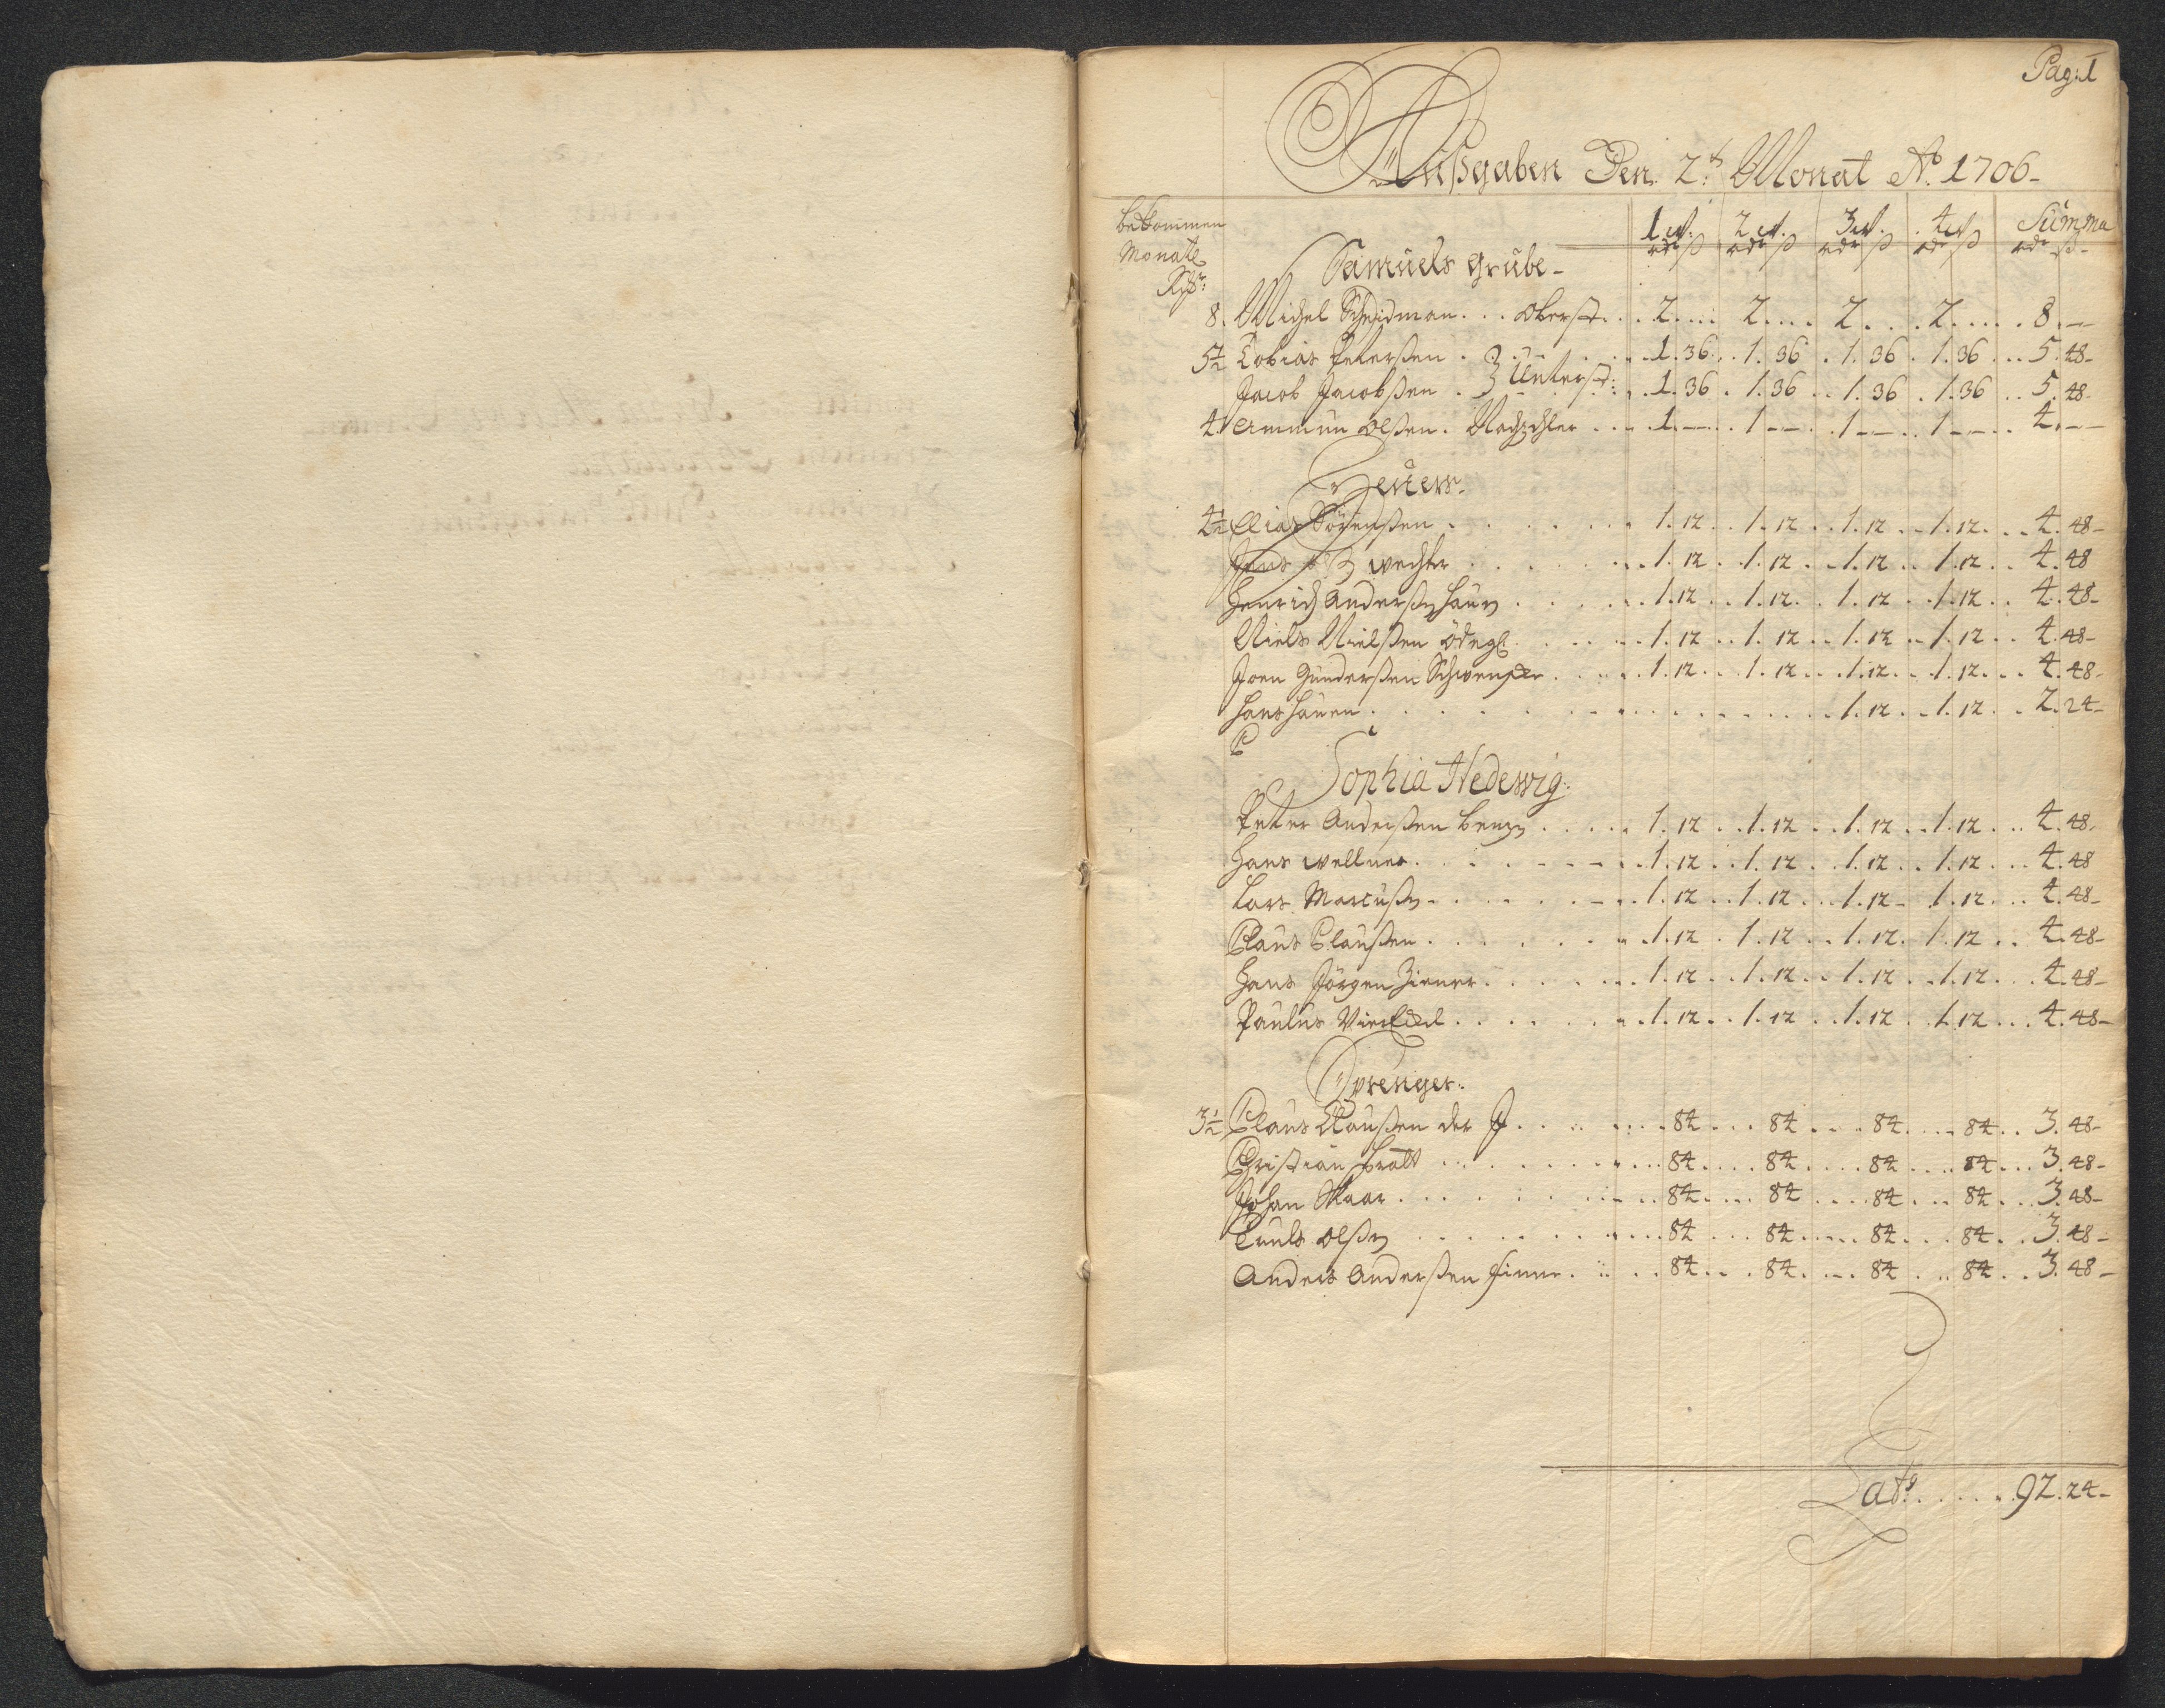 Pag: 1
Außgaben Den 2t Monat Ao 1706
bekommen
Monatl
1 W. 2 W. 3 W. 4 W. Summa
rdr ß rdr ß rdr ß rdr ß rdr ß
Samuels Grube
8. Michel Schridman ... oberst. 2 ... 2 ... 2 ... 2 ... 8. -
5½ Tobias Petersßen . 1. 36 . 1. 36 . 1. 36 . 1. 36 .. 5. 48
Jacob Jacobßen . Unterst: 1. 36 . 1. 36 . 1. 36 . 1. 36 .. 5. 48
4. Ammun Olßen . 1. - 1 - 1 - 1 - 4. -
Heuers
4½ Elias Sörenßen . 1. 12 . 1. 12 . 1. 12 . 1. 12 .. 4. 48
Jens wechter . 1. 12 . 1. 12 . 1. 12 . 1. 12 .. 4. 48
Henrich Anderßen . 1. 12 . 1. 12 . 1. 12 . 1. 12 .. 4. 48
Niels Nielßen . 1. 12 . 1. 12 . 1. 12 . 1. 12 .. 4. 48
Joen Gunderßen . 1. 12 . 1. 12 . 1. 12 . 1. 12 .. 4. 48
Hans Hauen . 1. 12 . 1. 12 . 2. 24
Sophia Hedewig
Peter Anderßen . 1. 12 . 1. 12 . 1. 12 . 1. 12 .. 4. 48
Hans wellner . 1. 12 . 1. 12 . 1. 12 . 1. 12 .. 4. 48
Lars Marcußen . 1. 12 . 1. 12 . 1. 12 . 1. 12 .. 4. 48
Claus Claußen . 1. 12 . 1. 12 . 1. 12 . 1. 12 .. 4. 48
Hans Jörgen Ziener . 1. 12 . 1. 12 . 1. 12 . 1. 12 .. 4. 48
Paulus . 1. 12 . 1. 12 . 1. 12 . 1. 12 .. 4. 48
Sprenger
3½ Claus Claußen der J . 84 ... 84 ... 84 ... 84 .. 3. 48
Christian . 84 ... 84 ... 84 ... 84 .. 3. 48
Johan . 84 ... 84 ... 84 ... 84 .. 3. 48
Olßen . 84 ... 84 ... 84 ... 84 .. 3. 48
Anders Anderßen Finne . 84 ... 84 ... 84 ... 84 .. 3. 48
Lats ..... 92. 24